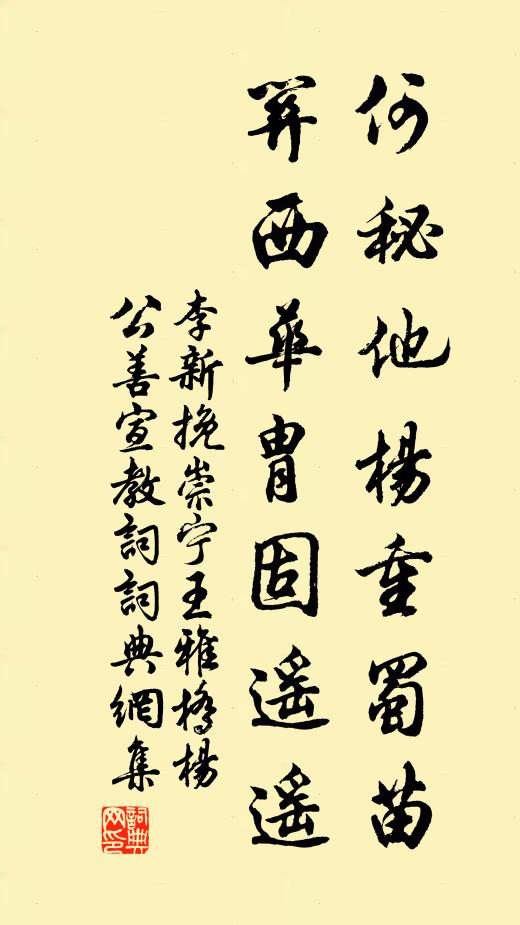 何秘他楊重蜀苗
西華胄固遥遥
李新挽崇宁王雅橋楊
公善宣教詞詞典網集
詞典
网印